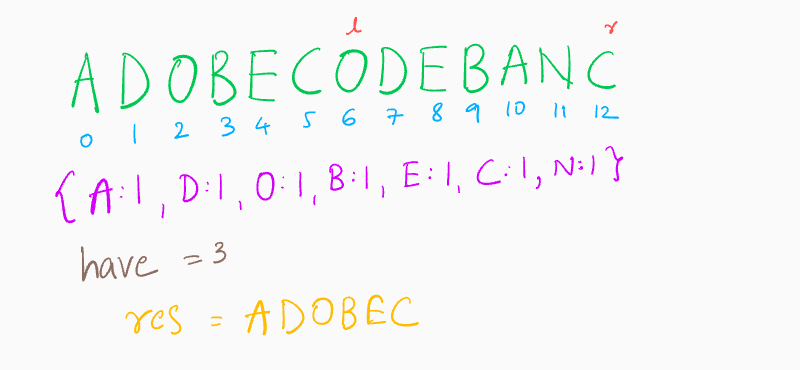 l r
ADOBECODEBANC
0 1 2 3 4 5 6 7 8 9 10 11 12
{A:1, D:1, O:1, B:1, E:1, C:1, N:1}
have = 3
res = ADOBEC